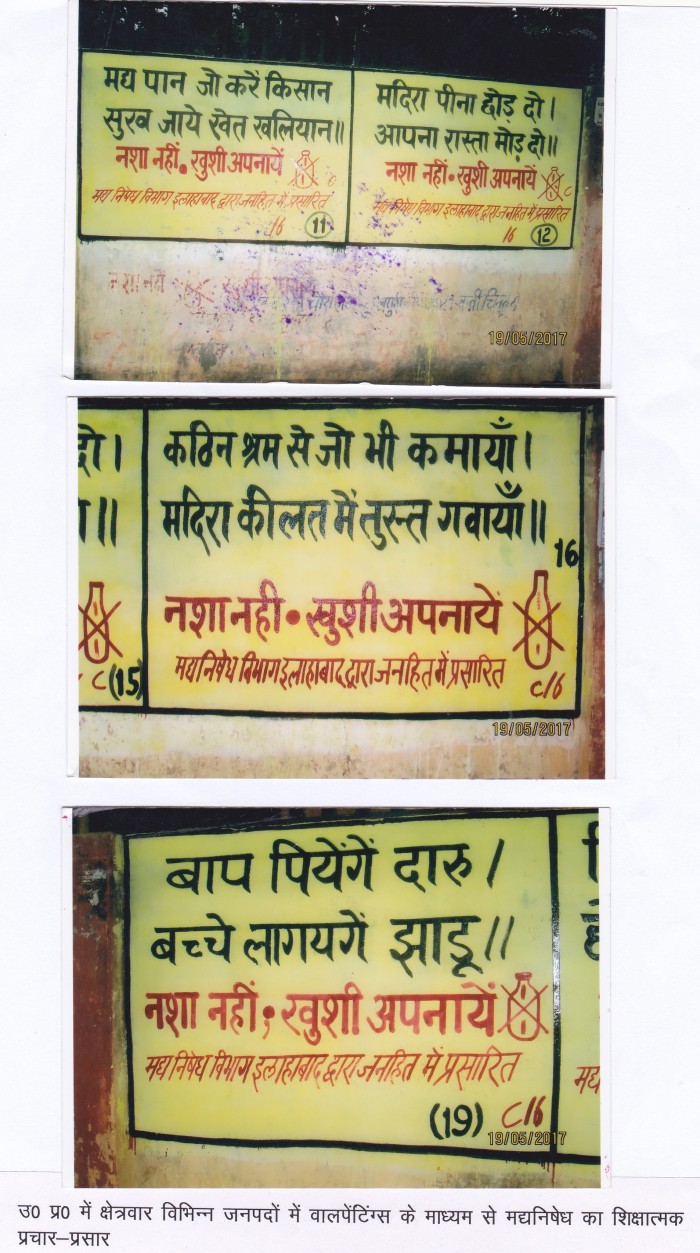 मद्य पान जो करें किसान
सुख जाये खेत खलियान॥
नशा नहीं • खुशी अपनायें
मद्य निषेध विभाग इलाहाबाद द्वारा जनहित में प्रसारित
16 11
मदिरा पीना छोड़ दो।
आपना रास्ता मोड़ दो॥
नशा नहीं • खुशी अपनायें
मद्य निषेध विभाग इलाहाबाद द्वारा जनहित में प्रसारित
16 12
नशा नहीं खुशी
19/05/2017
दो।
॥
C (15)
कठिन श्रम से जो भी कमायाँ।
मदिरा की लत में तुरन्त गवायाँ॥
16
नशा नही • खुशी अपनायें
मद्य निषेध विभाग इलाहाबाद द्वारा जनहित में प्रसारित
c/16
19/05/2017
बाप पियेंगें दारु।
बच्चे लागयगें झाडू॥
नशा नहीं; खुशी अपनायें
मद्य निषेध विभाग इलाहाबाद द्वारा जनहित में प्रसारित
(19) C/16
19/05/2017
मद्य
उ0 प्र0 में क्षेत्रवार विभिन्न जनपदों में वालपेंटिंग्स के माध्यम से मद्यनिषेध का शिक्षात्मक
प्रचार–प्रसार